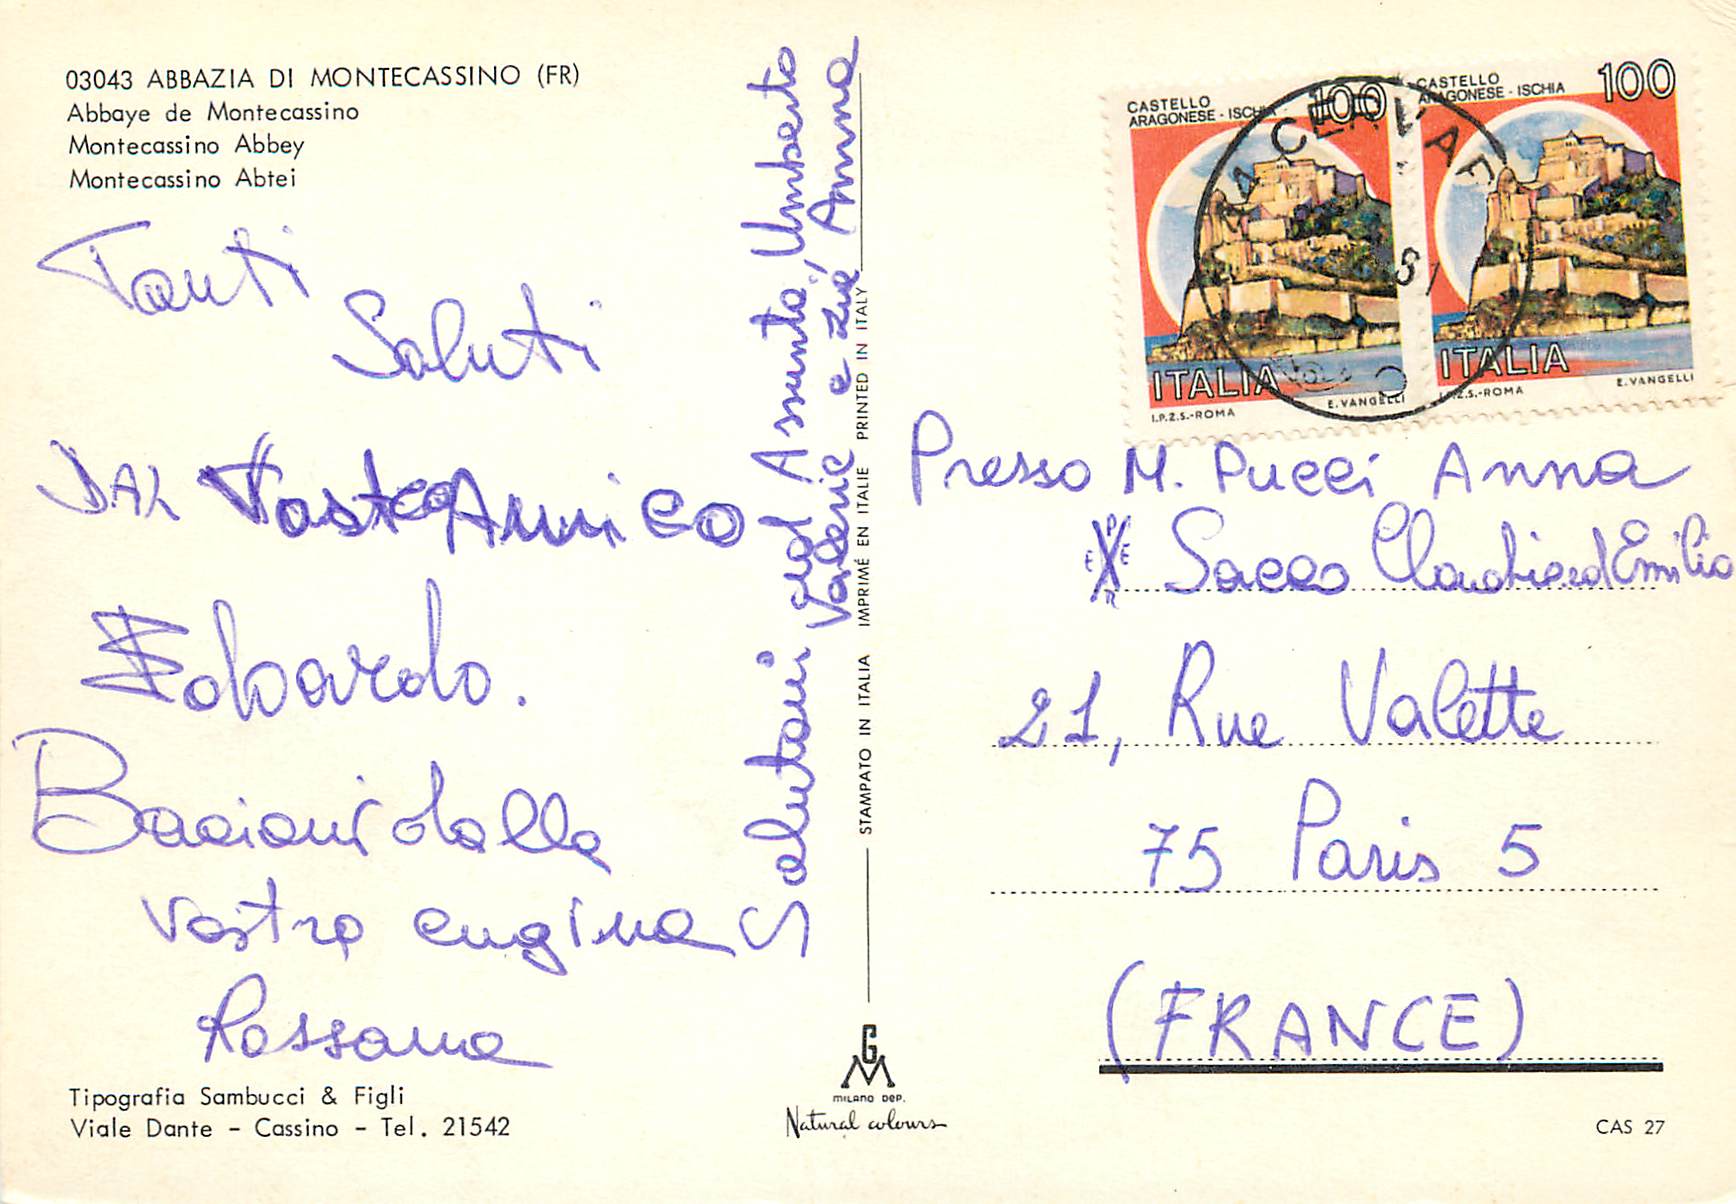 03043 ABBAZIA DI MONTECASSINO (FR)
Abbaye de Montecassino
Montecassino Abbey
Montecassino Abtei
Tanti
Saluti
DAL Vostro Amico
Edoardo.
Bacioni dalla
vostra cugina
Rossana
Salutoni dal Assunta, Umberto
Valerie e zia Anna
Tipografia Sambucci & Figli
Viale Dante - Cassino - Tel. 21542
STAMPATO IN ITALIA IMPRIMÉ EN ITALIE PRINTED IN ITALY
GM
MILANO DEP.
Natural colours
CASTELLO
ARAGONESE - ISCHIA
100
ITALIA
I.P.Z.S.-ROMA
E. VANGELLI
CASTELLO
ARAGONESE - ISCHIA
100
ITALIA
I.P.Z.S.-ROMA
E. VANGELLI
Presso M. Pucci Anna
PER Sacco Claudio ed Emilia
21, Rue Valette
75 Paris 5
(FRANCE)
CAS 27